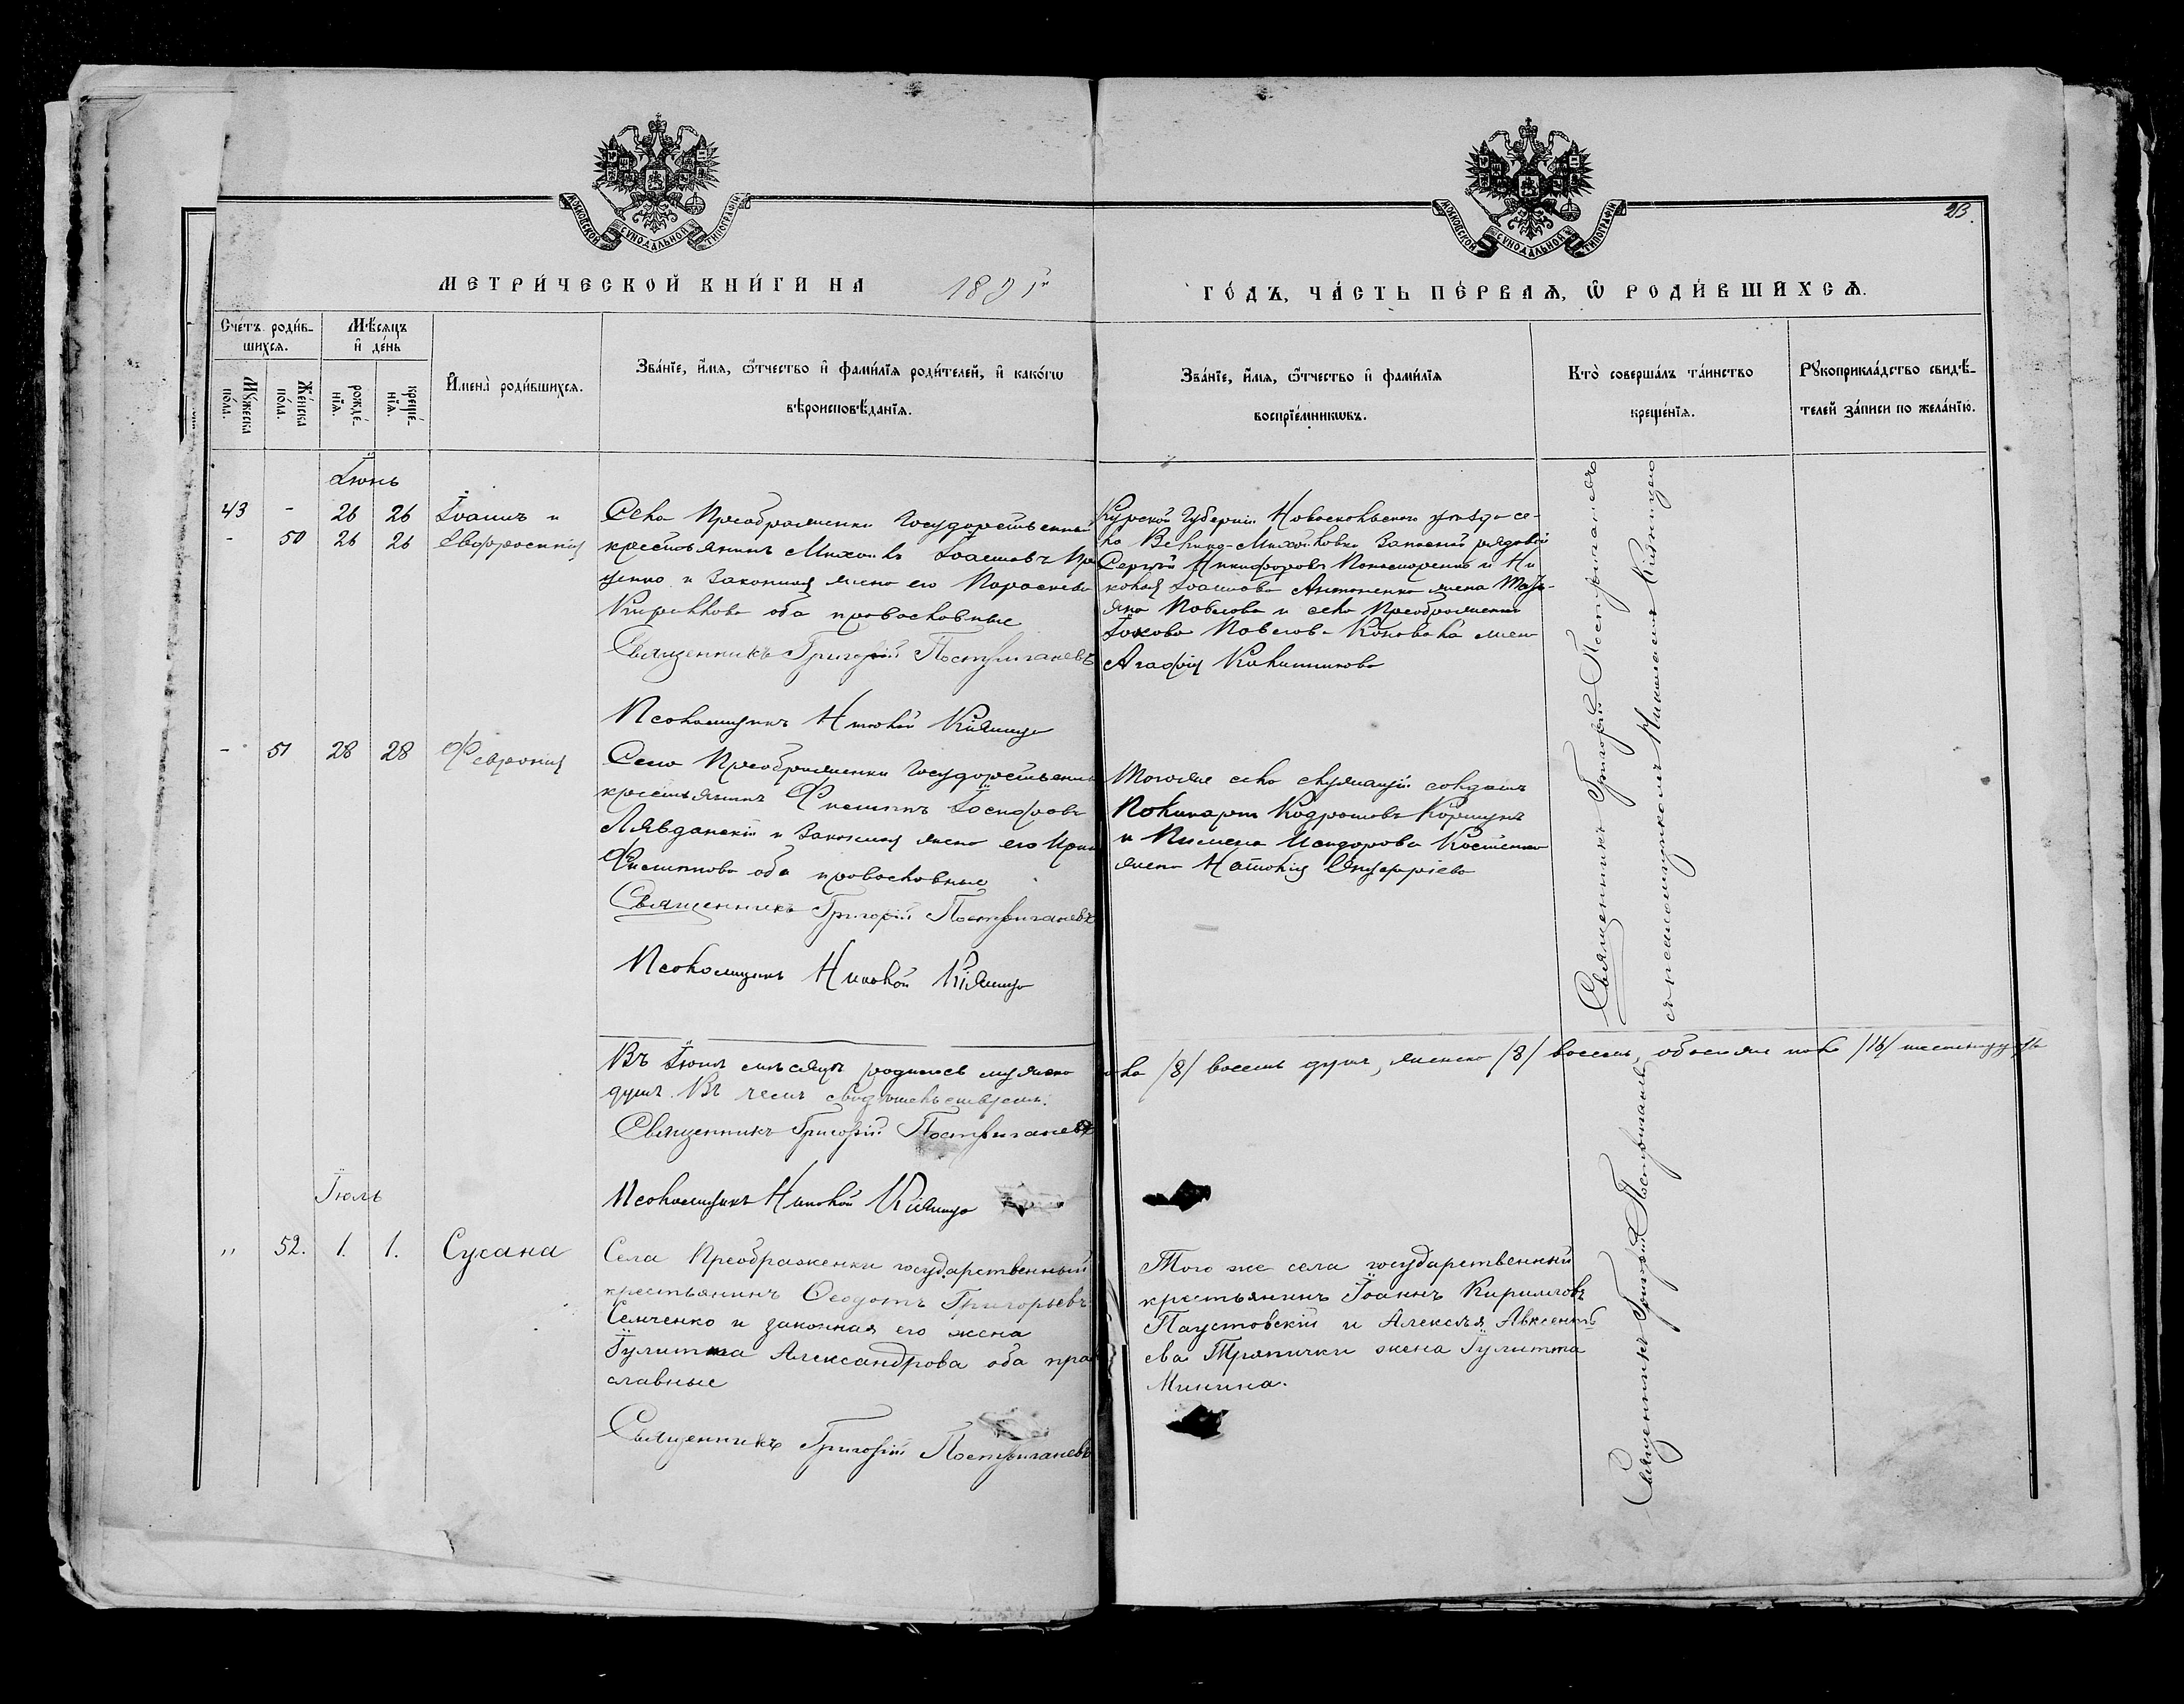 МОСКОВСКОЙ СѴНОДАЛЬНОЙ ТИПОГРАФІИ
МОСКОВСКОЙ СѴНОДАЛЬНОЙ ТИПОГРАФІИ
23.
МЕТРИ́ЧЕСКОЙ КНИ́ГИ НА
ГО́ДЪ, ЧА́СТЬ ПЕ́РВАѦ, Ѿ РОДИ́ВШИХСѦ.
Сче́тъ роди́в-
шихсѧ.
Мꙋ́жеска по́ла.
Же́нска по́ла.
Мѣ́сѧцъ
и҆ де́нь
рожде́-нїѧ.
креще́-нїѧ.
И҆мена̀ роди́вшихсѧ.
Зва́нїе, и҆́мѧ, ѻ҆́тчество и҆ фами́лїѧ роди́телей, и҆ како́гѡ
вѣроисповѣ́данїѧ.
Зва́нїе, и҆́мѧ, ѻ҆́тчество и҆ фами́лїѧ
воспрїе́мникѡвъ.
Кто̀ соверша́лъ та́инство
креще́нїѧ.
Рꙋкоприкла́дство свидѣ́-
телей за́писи по жела́нїю.
Іюнь
43 - 26 26 Іоаннъ и
- 50 26 26 Евфросинія
Села Преображенки Государственный
крестьянинъ Михаилъ Іоанновъ
и законная жена его Параскева
Кириллова оба православные
Священникъ Григорій Постригачевъ
Псаломщикъ Николай Кіяница
Курской Губерніи Новооскольскаго уѣзда се-
ла Велико-Михайловки запасный рядовой
Сергѣй Никифоровъ Пономаренко и Ни
колая Іоаннова Антоненко жена Татъ-
яна Павлова и села Преображенки
Іакова Павлова Коновала жена
Агафія Калинникова
Священникъ Григорій Постригачевъ
съ псаломщикомъ Николаемъ Кіяницею
- 51 28 28 Февронія
Села Преображенки Государственный
крестьянинъ Филиппъ Іосифовъ
Лявданскій и законная жена его Ирина
Филиппова оба православные
Священникъ Григорій Постригачевъ
Псаломщикъ Николай Кіяница
Тогоже села служащій солдатъ
Поликарпъ Кодратовъ Коршунъ
и Пимена Исидорова Костенко
жена Наталія Онуфріева
Въ Іюнѣ мѣсяцѣ родилось мужеска
пола /8/ восемь душъ, женска /8/ восемь, обоего же пола /16/ шестнадцать
душъ. Въ чемъ свидѣтельствуемъ.
Священникъ Григорій Постригачевъ
Псаломщикъ Николай Кіяница
Іюль
„ 52. 1. 1. Сусана
Села Преображенки государственный
крестьянинъ Ѳеодотъ Григорьевъ
Семченко и законная его жена
Іулитта Александрова оба право
славные
Священникъ Григорій Постригачевъ
Того же села государственный
крестьянинъ Іоаннъ Кирилловъ
Паустовскій и Алексѣя Авксенть
ева Тряпички жена Іулитта
Минина.
Священникъ Григорій Постригачевъ